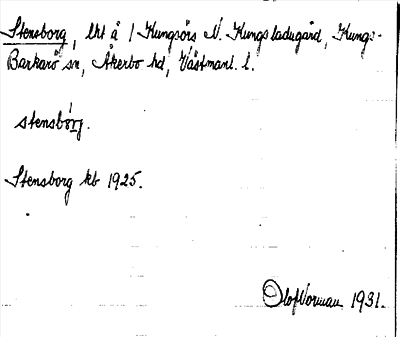 Stensborg, lht å 1 Kungsörs N. Kungsladugård, Kungs-
Barkarö sn, Åkerbo hd, Västmanl. l.
stensbórj.
Stensborg kb 1925.
Olof Norman 1931.